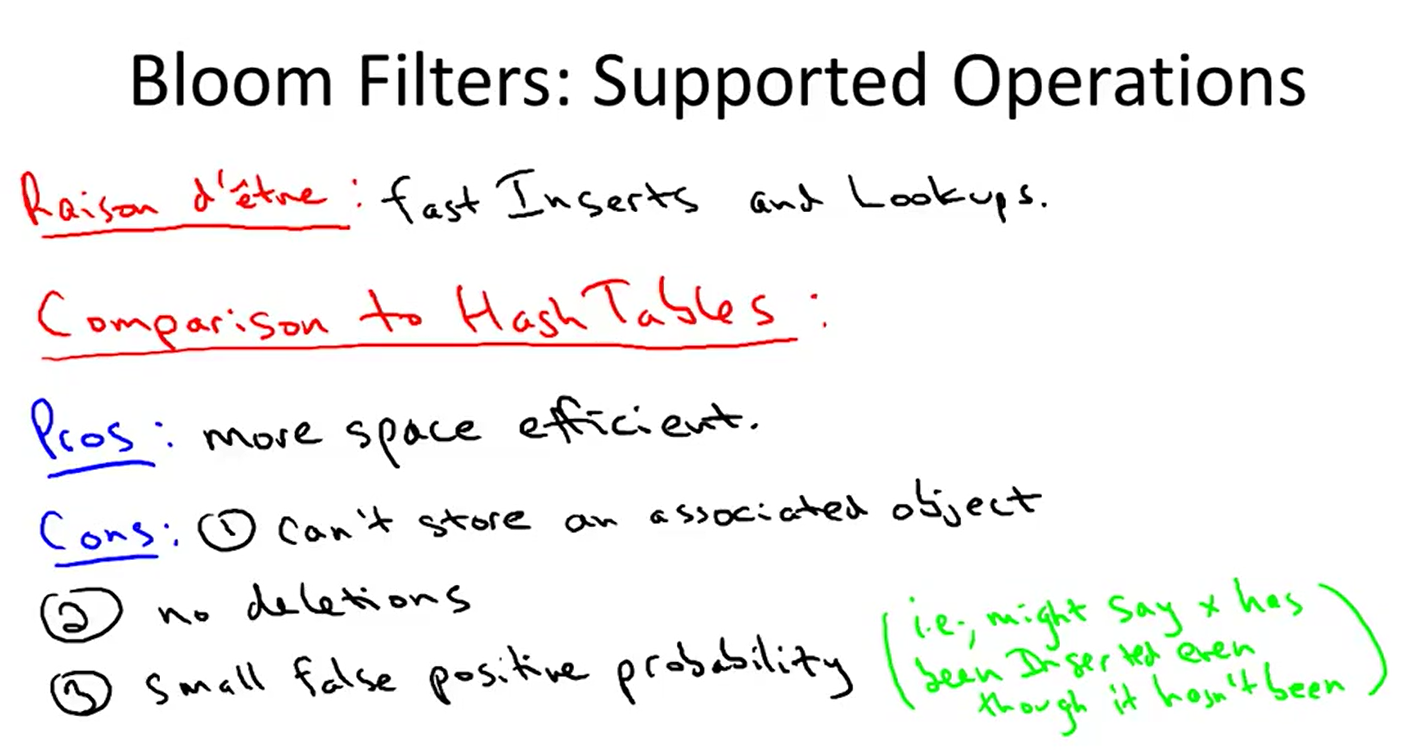 Bloom Filters: Supported Operations
Raison d'être: fast Inserts and Lookups.
Comparison to Hash Tables:
Pros: more space efficient.
Cons: ① can't store an associated object
② no deletions
③ small false positive probability
(i.e., might say x has
been Inserted even
though it hasn't been)